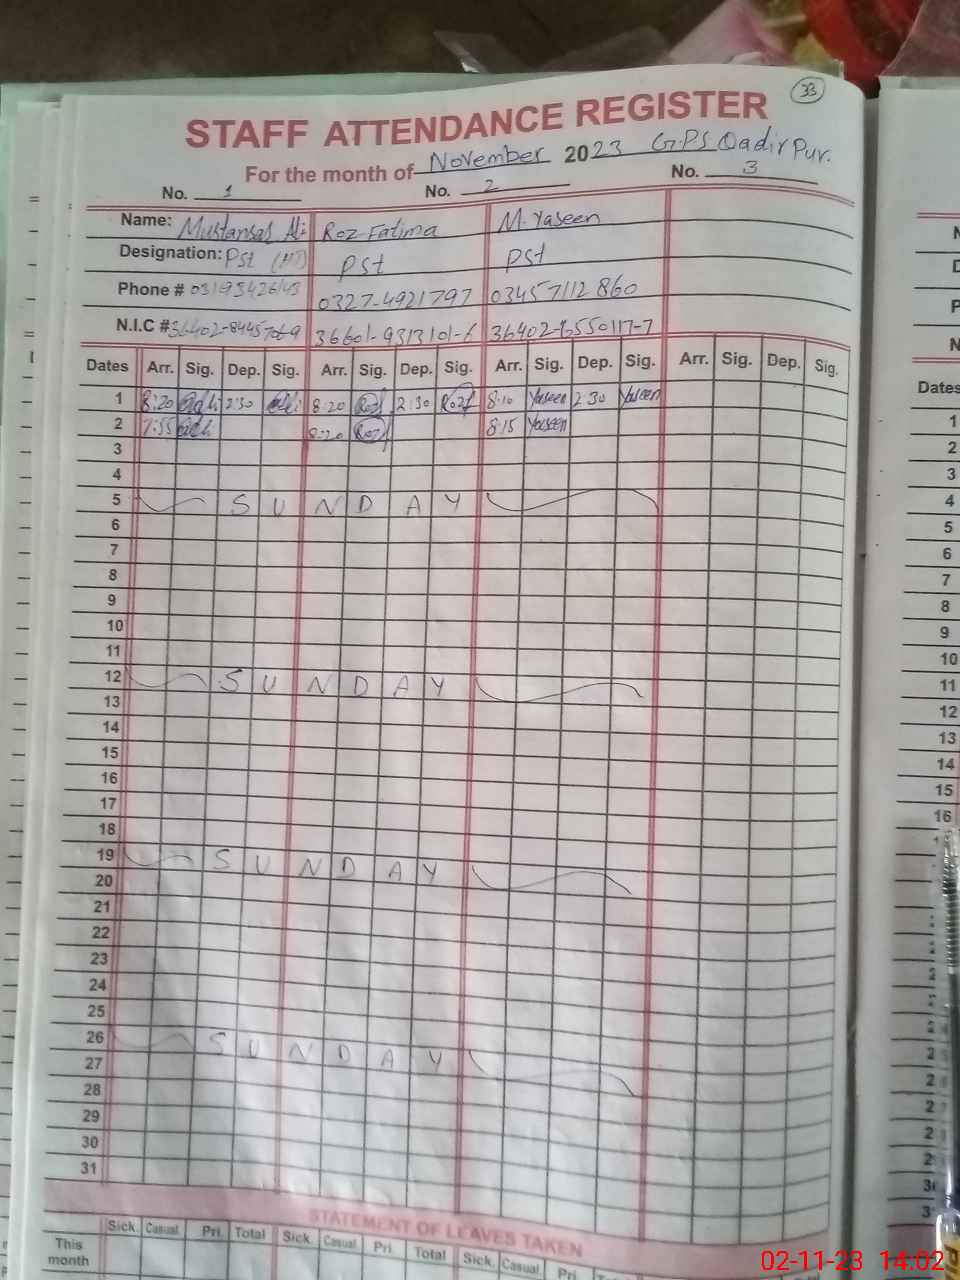 33
STAFF ATTENDANCE REGISTER
For the month of November 2023 G.P.S Qadir Pur.
No. 1 No. 2 No. 3
Name: Mustansar Ali Roz Fatima M. Yaseen
Designation: Pst PSt PSt
Phone # 0327-4921797 03457112860
N.I.C # 36402-6550117-7
Dates Arr. Sig. Dep. Sig. Arr. Sig. Dep. Sig. Arr. Sig. Dep. Sig. Arr. Sig. Dep. Sig.
1 8:20 2:30 Ali 8:20 Roz 2:30 Roz 8:10 Yaseen 2:30 Yaseen
2 7:55 8:20 Roz 8:15 Yaseen
3
4
5 SUNDAY
6
7
8
9
10
11
12 SUNDAY
13
14
15
16
17
18
19 SUNDAY
20
21
22
23
24
25
26 SUNDAY
27
28
29
30
31
STATEMENT OF LEAVES TAKEN
Sick. Casual. Pri. Total Sick. Casual. Pri. Total Sick. Casual. Pri.
This month
Dates
1
2
3
4
5
6
7
8
9
10
11
12
13
14
15
16
02-11-23 14:02